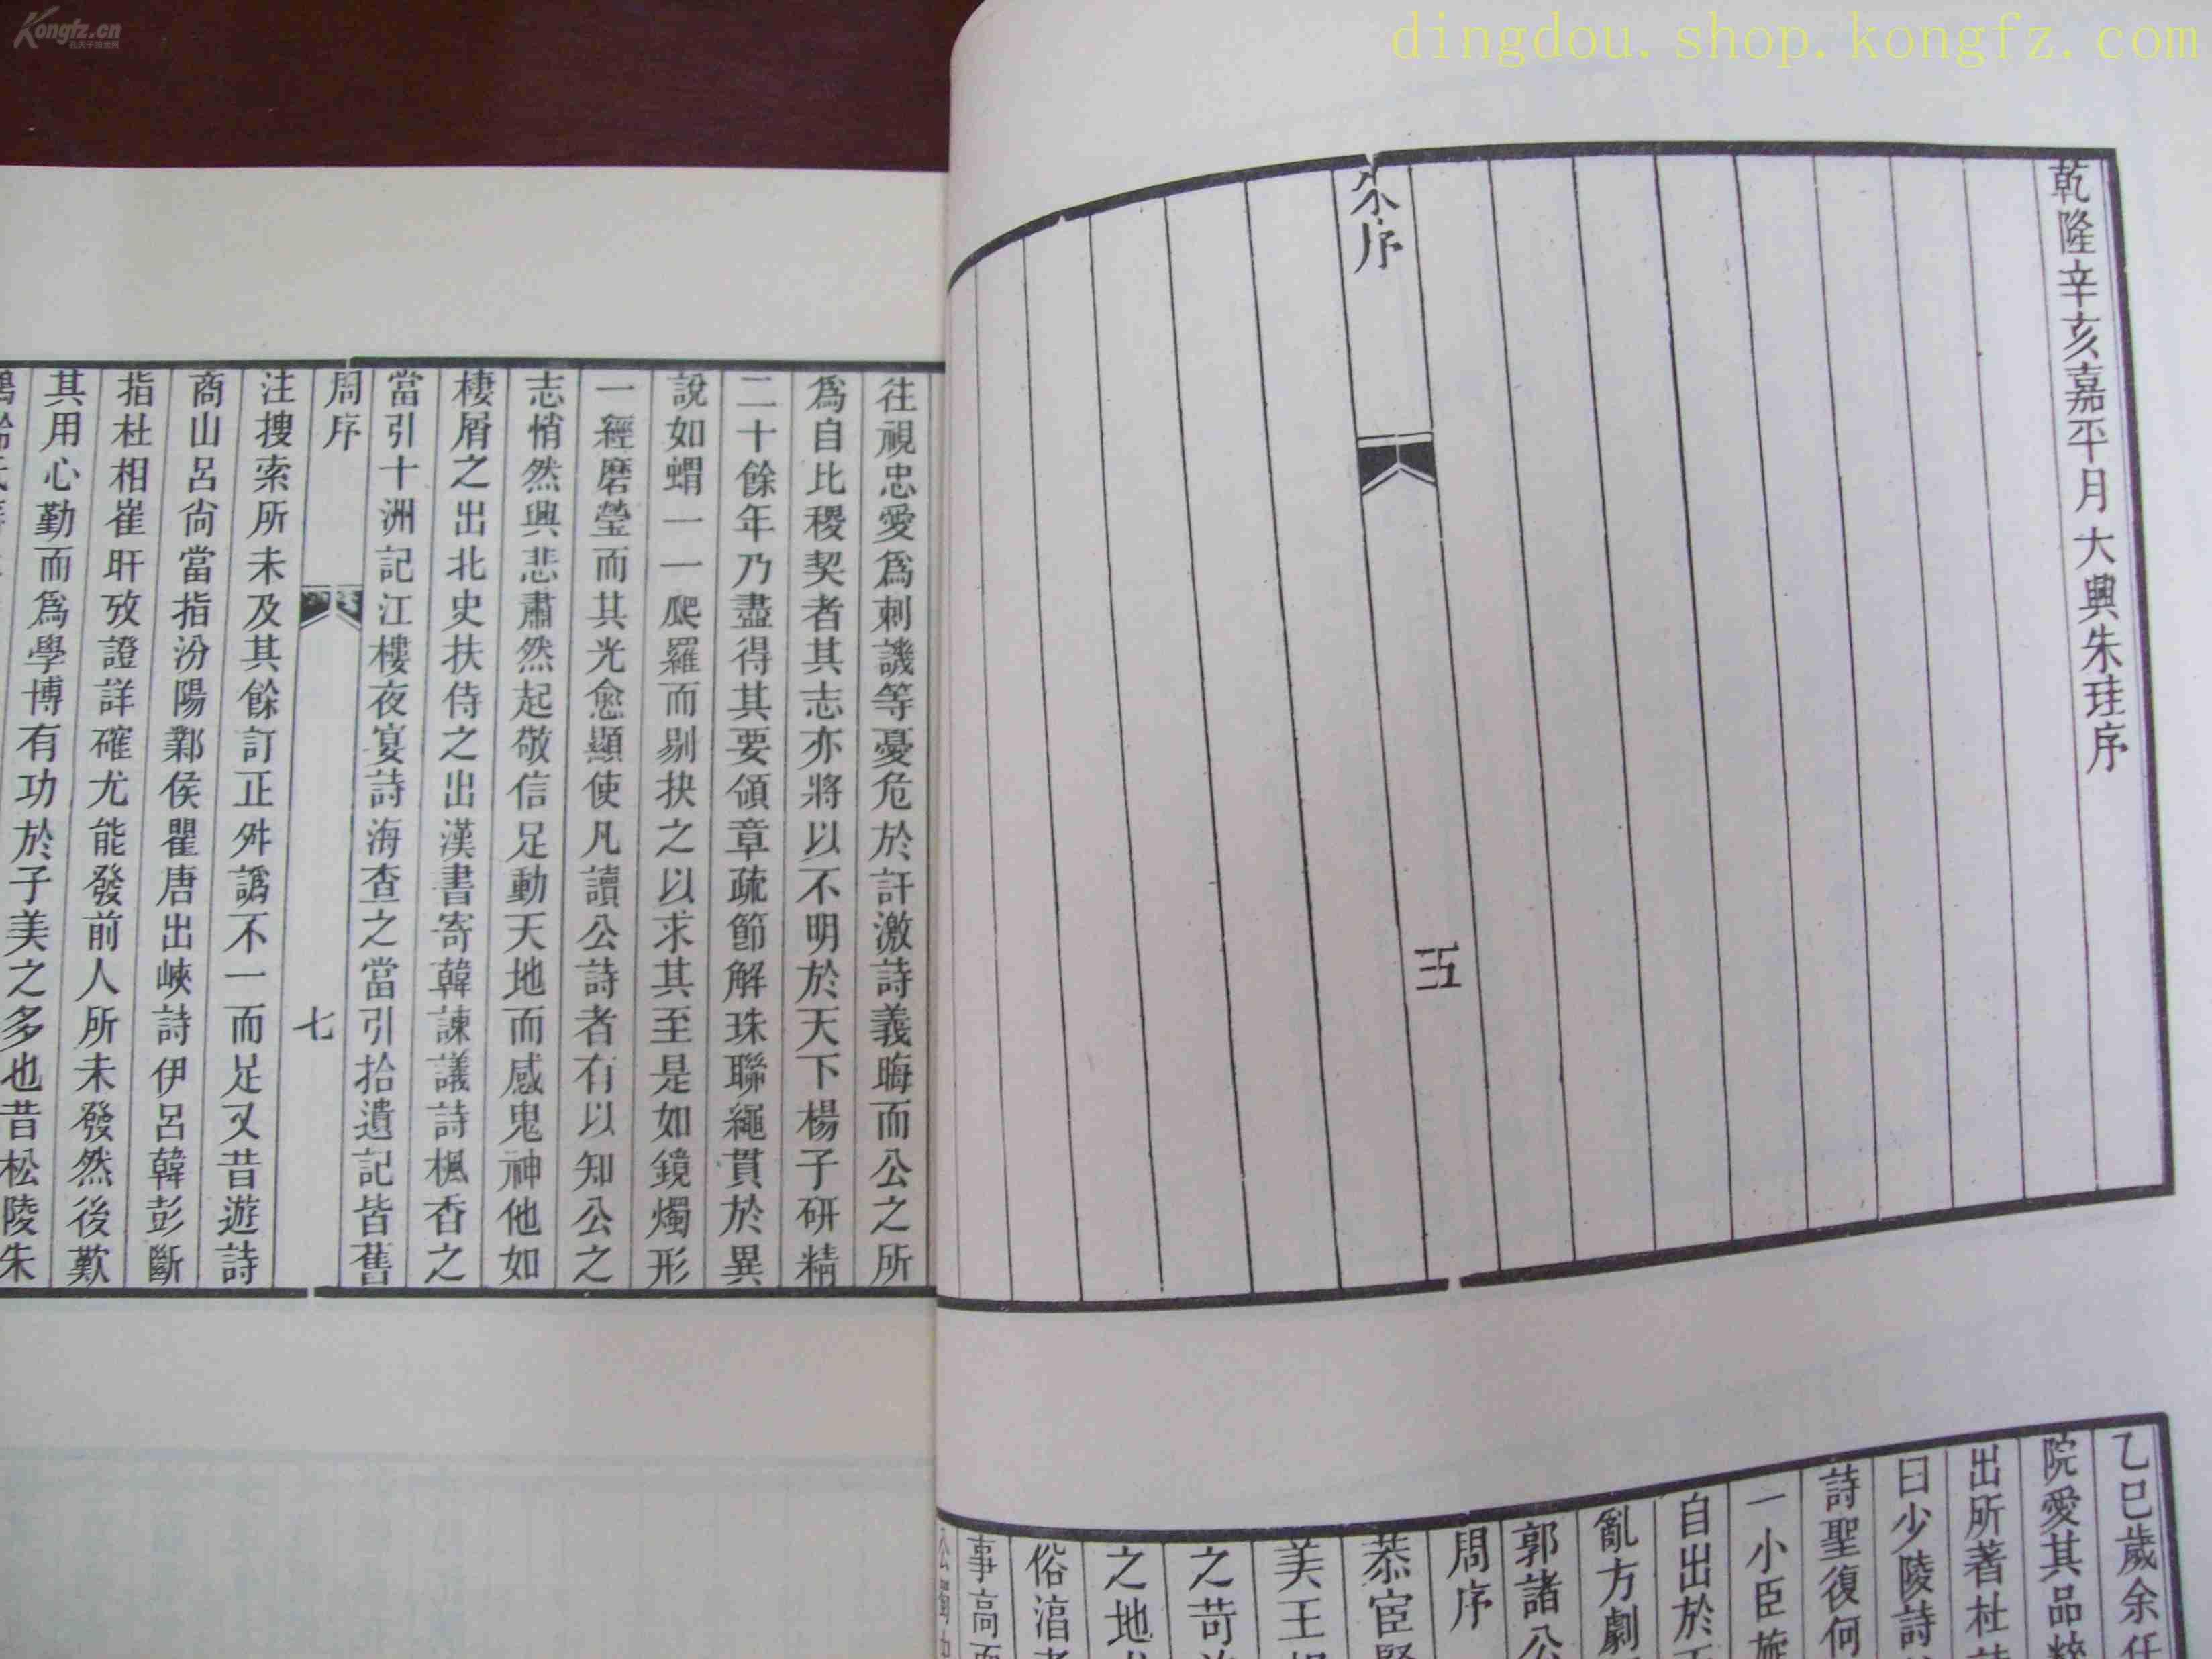 Kongfz.cn
孔夫子拍卖网
dingdou.shop.kongfz.com
乾隆辛亥嘉平月大興朱珪序
朱序
五
乙巳歲余任
院愛其品粹
出所著杜詩
曰少陵詩
詩聖復何
一小臣旋
自出於
亂方劇
郭諸公
周序
恭宦堅
美王
之苛
之地
俗滔者
事高而
往視忠愛爲刺譏等憂危於訐激詩義晦而公之所
爲自比稷契者其志亦將以不明於天下楊子研精
二十餘年乃盡得其要領章疏節解珠聯繩貫於異
說如蝟一一爬羅而剔抉之以求其至是如鏡燭形
一經磨瑩而其光愈顯使凡讀公詩者有以知公之
志悄然興悲肅然起敬信足動天地而感鬼神他如
棲屑之出北史扶侍之出漢書寄韓諫議詩楓香之
當引十洲記江樓夜宴詩海查之當引拾遺記皆舊
周序
七
注搜索所未及其餘訂正舛譌不一而足又昔遊詩
商山呂尙當指汾陽鄴侯瞿唐出峽詩伊呂韓彭斷
指杜相崔旰攷證詳確尤能發前人所未發然後歎
其用心勤而爲學博有功於子美之多也昔松陵朱
鶴齡氏